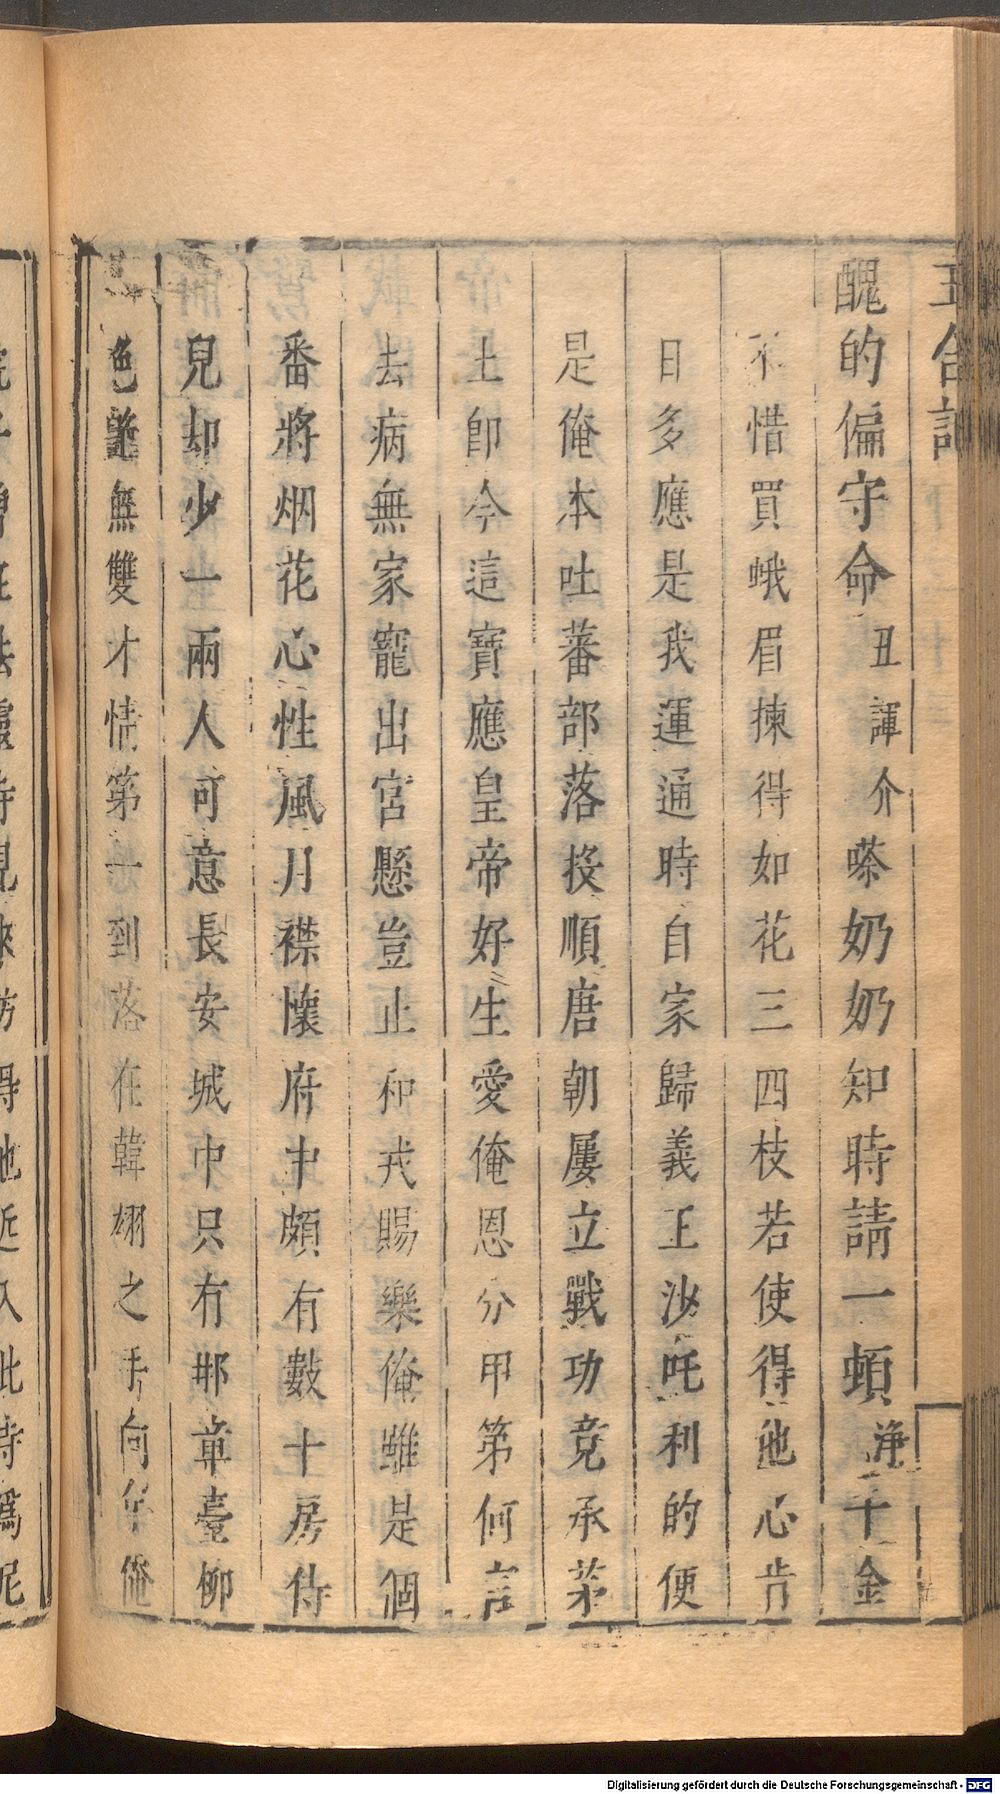 玉合記
醜的偏守命 丑諢介 嗏奶奶知時請一頓 淨 千金
不惜買蛾眉揀得如花三四枝若使得他心肯
日多應是我運通時自家歸義王沙吒利的便
是俺本吐蕃部落投順唐朝屢立戰功竞承茅
土卽今這寶應皇帝好生愛俺恩分甲第何言
去病無家寵出宮懸豈止和戎賜樂俺雖是個
番將烟花心性風月襟懷府中頗有數十房侍
兒却少一兩人可意長安城中只有那章臺柳
色藝無雙才情第一到落在韓翃之手向年俺